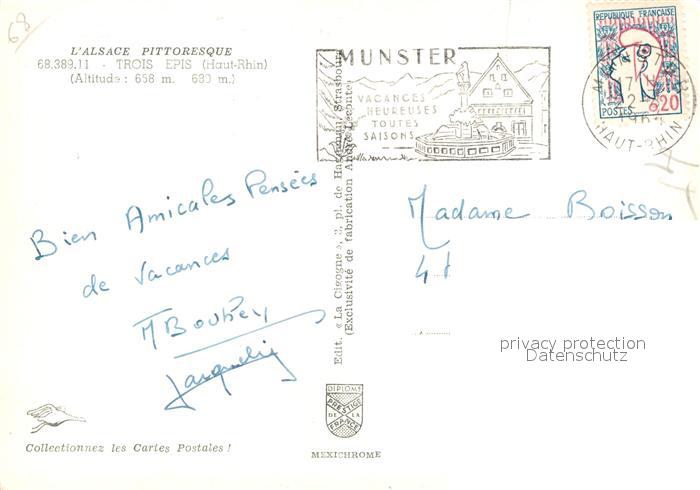 68
L'ALSACE PITTORESQUE
68.389.11 - TROIS EPIS (Haut-Rhin)
(Altitude : 658 m. 680 m.)
MUNSTER
VACANCES
HEUREUSES
TOUTES
SAISONS
REPUBLIQUE FRANÇAISE
POSTES 0,20
HAUT-RHIN
Bien Amicales Pensées
de Vacances
Jacqueline
Madame Boisson
41
Edit. « La Cigogne », 3, pl. de Haguenau, Strasbourg
(Exclusivité de fabrication André Leconte)
privacy protection
Datenschutz
DIPLOME
PRESTIGE
DE LA
FRANCE
MEXICHROME
Collectionnez les Cartes Postales !